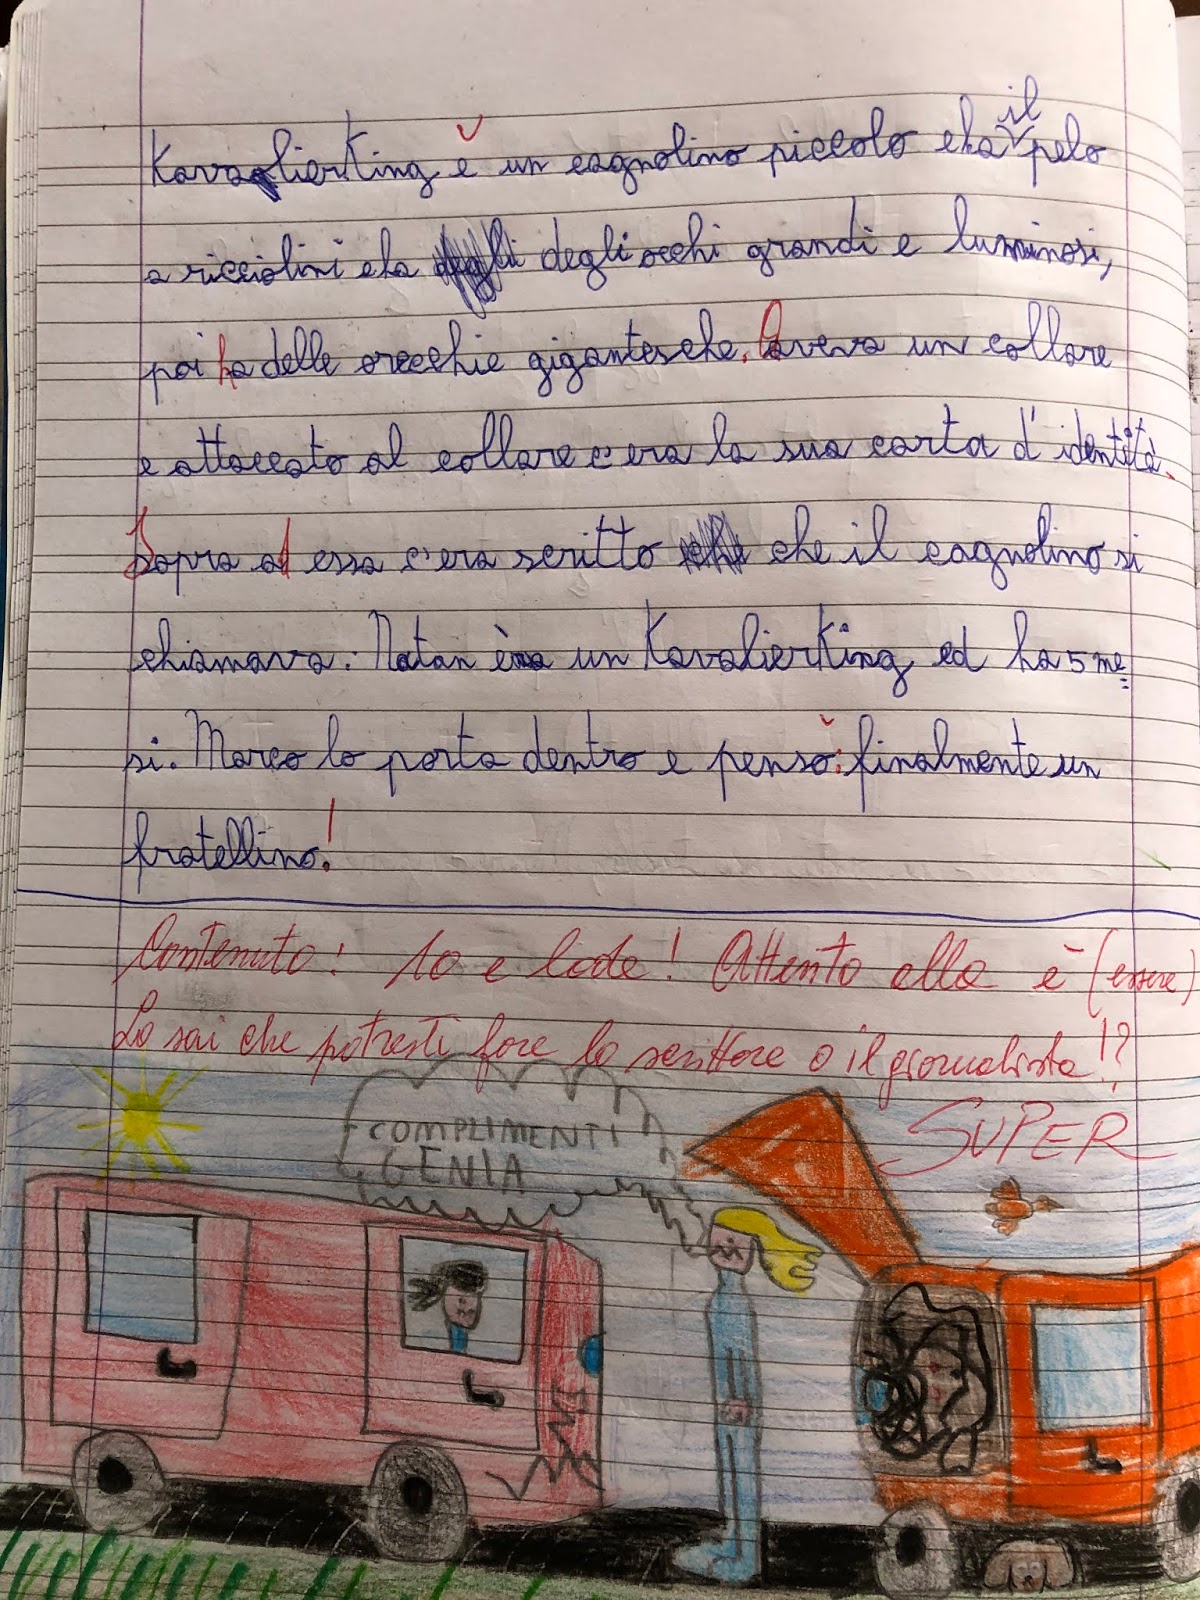 il
KavalierKing è un cagnolino piccolo e ha pelo
a ricciolini e ha degli occhi grandi e luminosi,
poi ha delle orecchie gigantesche. Aveva un collare
e attaccato al collare c'era la sua carta d'identità.
Sopra ad essa c'era scritto che il cagnolino si
chiamava: Natan è un KavalierKing ed ha 5 me
si. Marco lo porta dentro e pensò: finalmente un
fratellino!
Contenuto: 10 e lode! Attento alla è (essere)
Lo sai che potresti fare lo scrittore o il giornalista!?
SUPER
COMPLIMENTI
GENIA